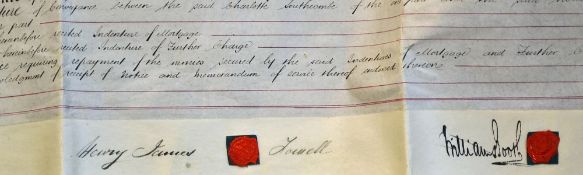 of Conveyance between the said Charlotte Southcombe of the
part
hereinbefore recited Indenture of Mortgage
hereinbefore recited Indenture of Further Charge
requiring repayment of the monies secured by the said Indentures of Mortgage and Further
of receipt of Notice and Memorandum of service thereof endorsed thereon
Henry James Towell William Booth